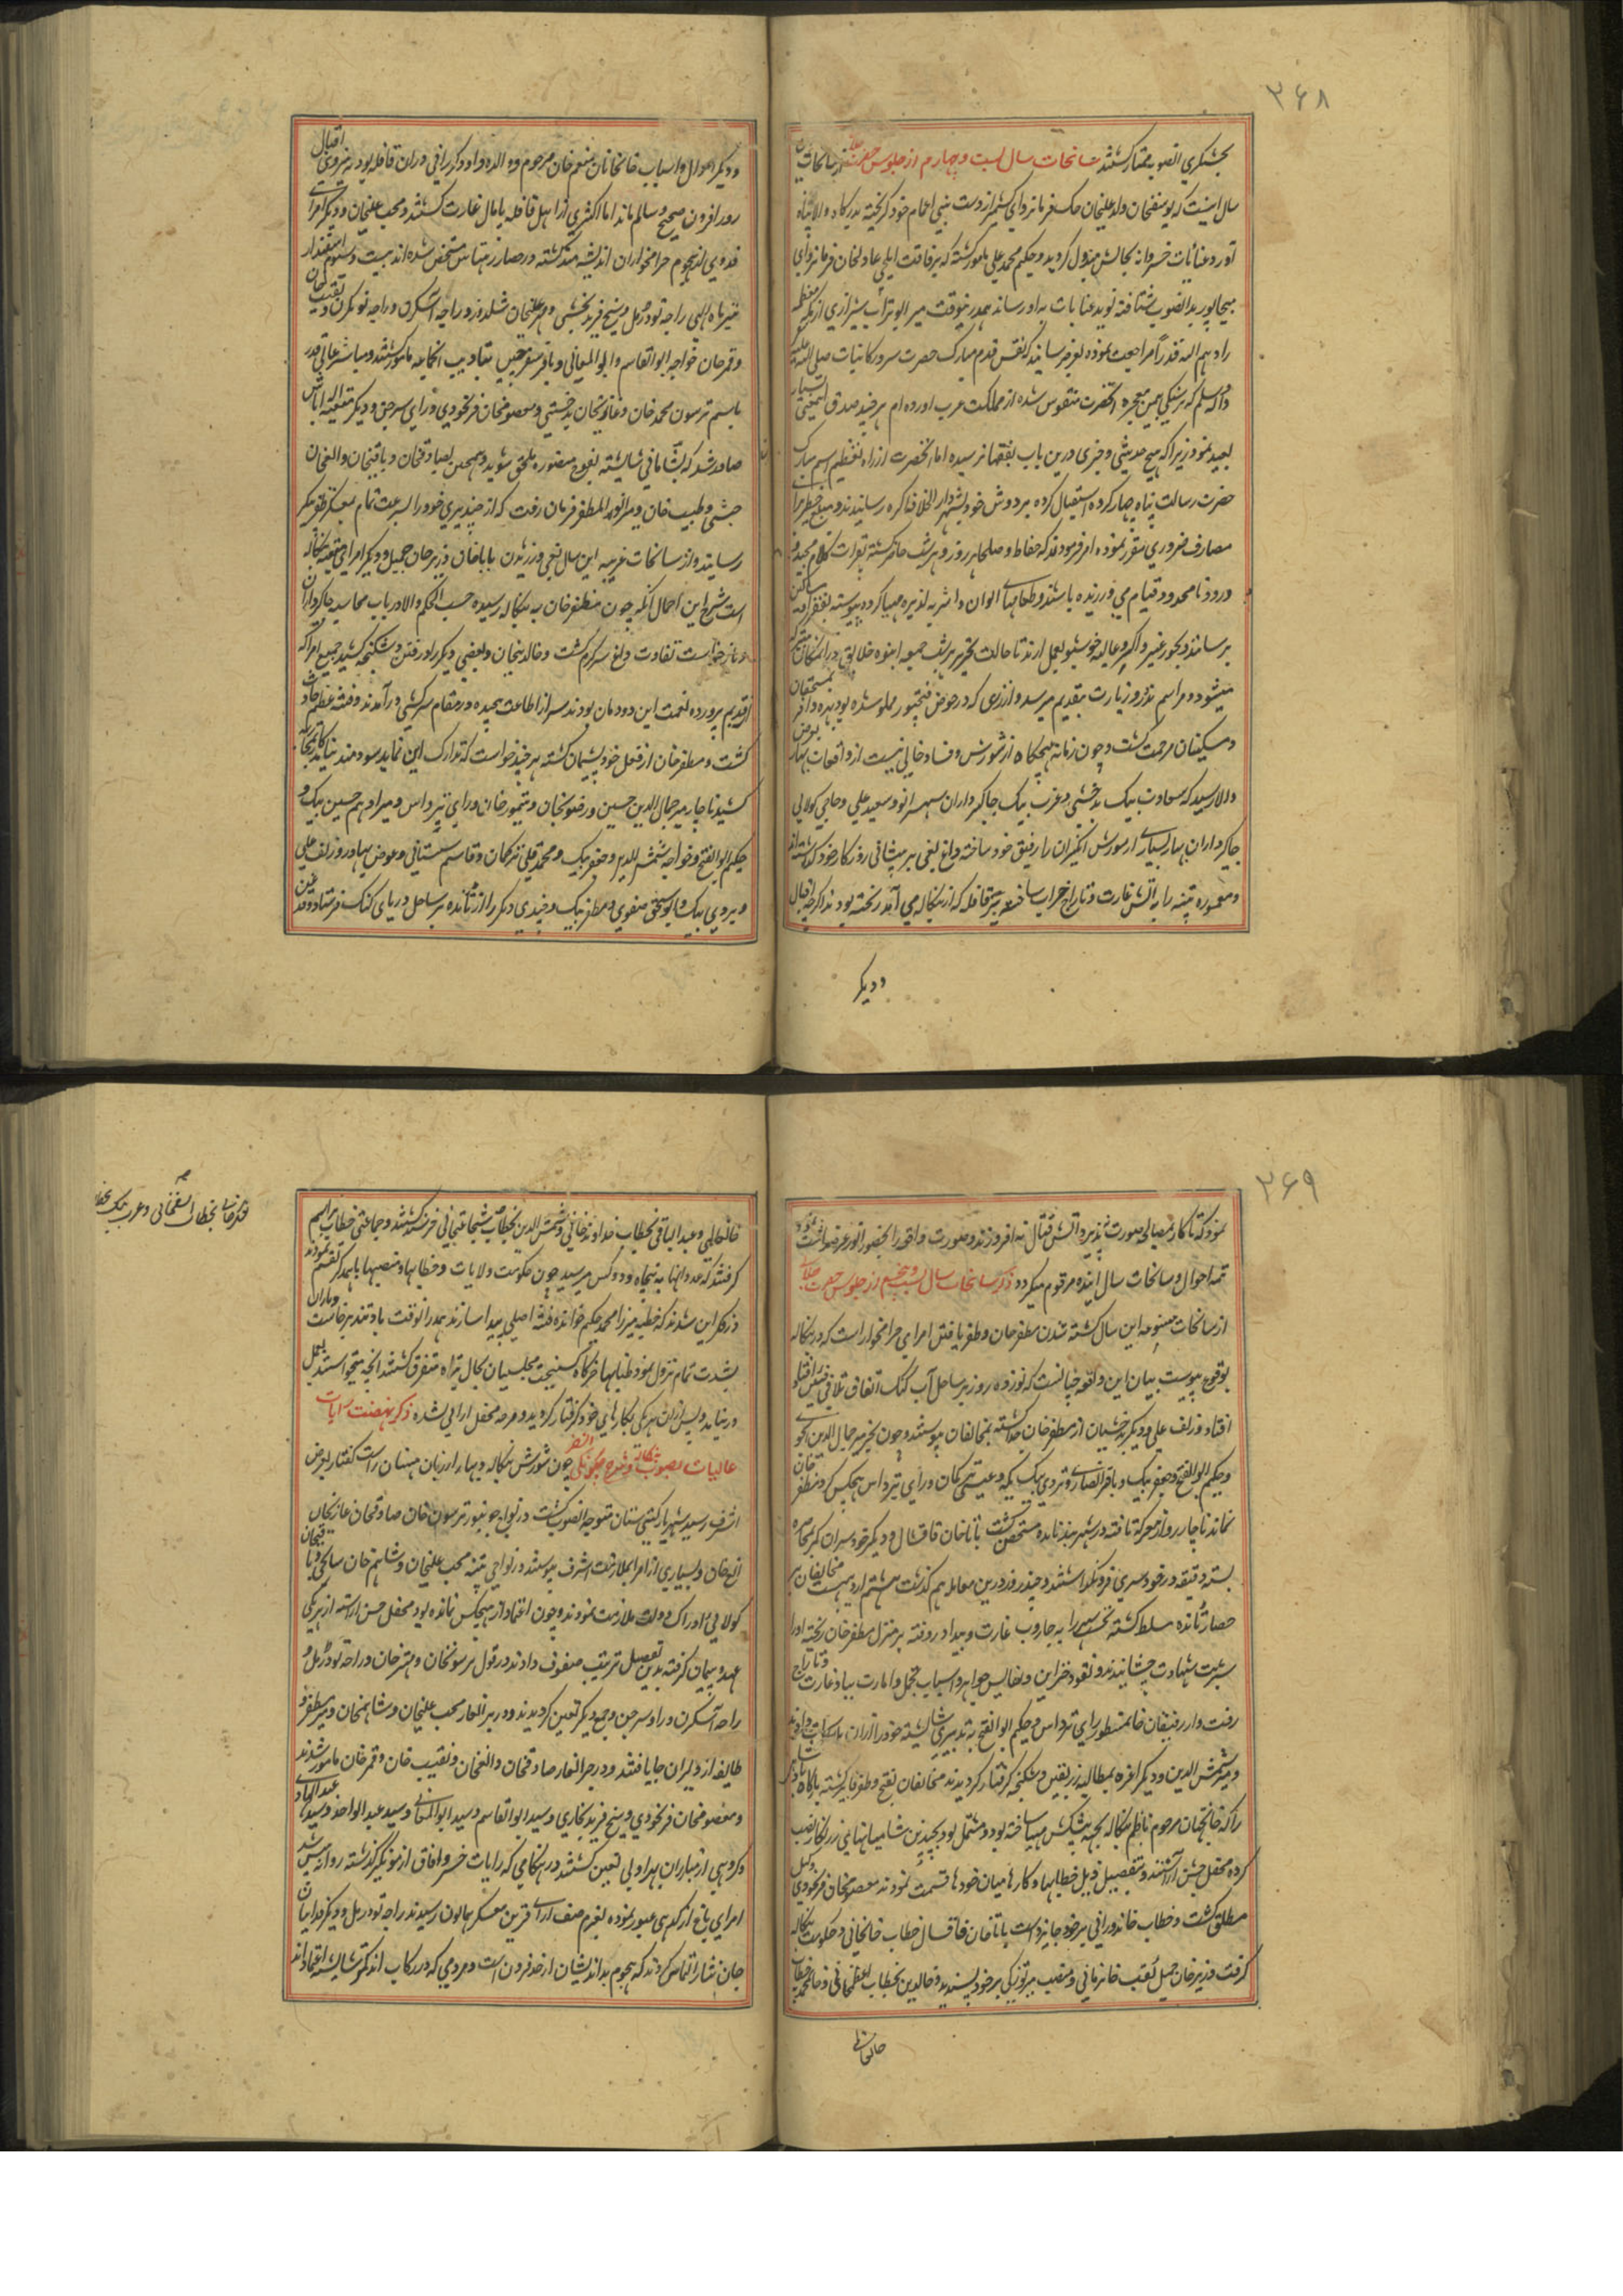 ۳۶۸
بخشیگری انصوب ممتاز گشتند سانحات سال بست و چهارم از جلوس حضرت از سانحات
سال اینست که یوسفخان ولد علیخان چک فرمانروای کشمیر از دست بنی اعمام خود گریخته بدرگاه والا پناه
آورد و عنایات خسروانه بحالش مبذول گردید و حکیم محمد علی مامور گشته که برفاقت ایلچی عادلخان فرمانروای
بیجاپور بدانصوب شتافته نوید عنایات به او رساند همدرینوقت میر ابوتراب شیرازی از مکه معظمه
زادهم الله قدراً مراجعت نموده بعرض رسانید که نقش قدم مبارک حضرت سرور کاینات صلی الله علیه
و آله و سلم که بر سنگی بیمن معجزه آنحضرت منقوش شده از مملکت عرب آورده ام هر چند صدق اینمعنی
بعید نمود زیرا که هیچ حدیثی و خبری درین باب بفقها نرسیده اما آنحضرت از راه تعظیم اسم مبارک
حضرت رسالت پناه چهار کروه استقبال کرده بر دوش خود بشهر دار الخلافه اگره رسانیدند و مبلغ خطیر برای
مصارف ضروری مقرر نموده امر فرمودند که حفاظ و صلحا هر روز و هر شب حاضر گشته بقرات کلام مجید و
درود نامحدود قیام می ورزیده باشند و طعامهای الوان و اشربه لذیذه مهیا کرده پیوسته بفقرا و مساکین
برسانند و بخور عنبر و اگر و غالیه خوشبو بعمل آرند تا حالت تحریر هر شب جمعه انبوه خلایق در آنمکان متبرکه
میشود و مراسم نذر و زیارت بتقدیم میرسد و از زری که در حوض فتحپور مملو شده بود بهره وافر بمستحقان
و مسکینان مرحمت گشت و چون زمانه هیچگاه از شورش و فساد خالی نیست از واقعات بهار بعرض
والا رسید که سعادت بیک بدخشی و عرب بیک جاگیرداران سهسرانو و سعید علی و حاجی کولابی
جاگیرداران بهار بسیاری از شورش انگیزان را رفیق خود ساخته داغ بغی بر پیشانی روزگار خود گذاشته اند
و معموره پتنه را به آتش غارت و تاراج خراب ساخته بر قافله که از بنگاله می آمد ریخته بودند اگرچه فیل
و دیگر
و دیگر اموال و اسباب خانخانان منعم خان مرحوم و والده و او و دیگر رافی دران قافله بود به نیروی اقبال
روز افزون صحیح و سالم ماند اما اکثری از اهل قافله پامال غارت گشتند و محب علیخان و دیگر امرای
فدوی از هجوم حرامخواران اندیشه مند گشته در حصار رهتاس متحصن شده اند بیست و سیوم اسفندار
نیر ماه الهی راجه تودرمل و شیخ فرید بخشی و مهر علیخان سلدوز و راجه آسکرن و راجه لونکرن و نقیب خان
و قمرخان خواجه ابوالقاسم و ابوالمعانی و باقر سفرچی بتادیب آنجماعه مامور گشتند و مناشیر عالی قدر
باسم ترسون محمد خان و غازیخان بدخشی و معصومخان فرنخودی و رای سرجن و دیگر متعینه اله اباس
صادر شد که بشامانی شایسته بفوج منصوره ملحق شوید و همچنین بصادقخان و باقیخان و الغخان
حبشی و طبیب خان و میر انور المظفر فرمان رفت که از چندیری خود را بسرعت تمام بعسکر ظفر پیکر
رسانید و از سانحات غریبه این سال بغی ورزیدن باباخان و زیرخان جمیل و دیگر امرای متعینه بنگاله
است شرح این اجمال آنکه چون مظفرخان به بنگاله رسیده حسب الحکم والا در باب محاسبه جاگیرداران
و باز خواست تفاوت داغ سرگرم گشت و خالدیخان و بعضی دیگر را در فتن و شکنجه کشید جمیع امرا که
از قدیم پرورده نعمت این دودمان بودند سر از اطاعت پیچیده در مقام سرکشی درآمدند و فتنه عظیم حادث
گشت و مظفرخان از فعل خود پشیمان گشته هر چند خواست که تدارک این نماید سودمند نیامد کار بجائی
کشید ناچار میر جمال الدین حسین و رضویخان و تیمور خان و رای تیرداس و میر ادهم حسین بیک و
حکیم ابوالفتح و خواجه شمس الدین و جعفر بیک و محمد قلی ترکمان و قاسم سیستانی و عوض بهادر و زلف علی
و یردی بیک و ابو اسحق صفوی و مظفر بیک و چندی دیگر را از تانده بر ساحل دریای گنگ فرستاد و قدغن
۳۶۹
نمود که تا کار بمصالح صورت پذیرد آتش قتال نه افروزند و صورت واقعه را بحضور انور عرضداشت
تتمه احوال و سانحات سال آینده مرقوم میگردد ذکر سانحات سال بست و پنجم از جلوس حضرت
از سانحات متنوعه این سال کشته شدن مظفرخان و ظفر یافتن امرای حرامخوار است که در بنگاله
بوقوع پیوست بیان این واقعه چنانست که نوزده روز بر ساحل آب گنگ اتفاق تلافی فئتین افتاد
افتاد و زلف علی و دیگر بدخشیان از مظفرخان جدا گشته بمخالفان پیوستند و چون بغیر میر جمال الدین انجوی
و حکیم ابوالفتح و جعفر بیک و باقر انصاری و تردی بیک یکه و عیسی ترکمان و رای تیرداس هیچکس گرد مظفرخان
نماند ناچار رو از معرکه تافته در شهر بند تانده متحصن گشت باباخان قاقشال و دیگر خود سران کمر بمحاصره
بسته دقیقه در خود سری فرو نگذاشتند و چند روز درین معامله هم گذشت هشتم اردیبهشت مخالفان بر
حصار تانده مسلط گشته نخست شهر را به جاروب غارت و بیداد روفته بر منزل مظفرخان ریخته او را
شربت شهادت چشانیدند و نقود خزاین و نفایس جواهر و اسباب تجمل و امارت بباد غارت و تاراج
رفت و از رفیقان خانمسطور رای ترداس و حکیم ابوالفتح به تدبیری شایسته خود را از ان
و میر شمس الدین و دیگر اعزه بمطالبه زر بقین و شکنجه گرفتار گردیدند مخالفان بفتح و ظفر فایز گشته بارگاه
را که خانجهان مرحوم ناظم بنگاله بجهت پیشکش مهیا ساخته بود و مشتمل بود بچندین شامیانهای زرنگار نصب
کرده محفل جشن آراستند و بتفصیل ذیل خطابها و کارها میان خودها قسمت نمودند معصومخان فرنخودی وکیل
مطلق گشت و خطاب خاندورانی بر خود جایز داشت باباخان قاقسال خطاب خانخانی و حکومت بنگاله
گرفت و زیرخان جمیل لقب خانزمانی و منصب میر توزکی بر خود پسندید و خالدین بخطاب اعظمخانی و جانمحمد بخطاب
خانخانی
خانعالمی و عبد الباقی بخطاب خداوند خانی و شمس الدین بخطاب شجاعتخانی خرسند گشتند و جماعتی خطاب میرانیم
گرفتند که عدد آنها به پنجاه و دو کس میرسید چون حکومت ولایات و خطابها و منصبها باهمدگر تقسیم نمودند
در فکر این شدند که خطبه میرزا محمد حکیم خوانده فتنه اصلی پیدا سازند همدر انوقت باد تند برخاست و باران
بشدت تمام نزول نمود طنابها خرگاه گسیخت مجلسیان بحال تباه متفرق گشتند آنچه میخواستند بعمل
درنیامد و پس ازان هر یکی بکارهای خود گرفتار گردید و عرصه محفل آرائی نشده ذکر نهضت رایات
عالیات بصوب بنگاله و شرح چگونگی چون شورش بنگاله و بهار از زبان منهیان راست گفتار بعرض
اشرف رسید شهریار گیتی ستان متوجه انصوب گشت در نواحی جونپور ترسون خان صادقخان غازیخان
الغ خان و بسیاری از امرا بملازمت اشرف پیوستند در نواحی پتنه محب علیخان و شاهم خان ساکجی و باقیخان
کولابی ادراک دولت ملازمت نمودند و چون اعتماد از هیچکس نمانده بود محفل جشن آراسته از هر یکی
عهد و پیمان گرفته بدین تفصیل ترتیب صفوف دادند در قول ترسونخان و مهترخان و راجه تودرمل و
راجه آسکرن و راو سرجن و جمع دیگر تعین گردیدند و در برانغار محب علیخان و شاهمخان و میر مظفر و
طایفه از دلیران جا یافتند و در جرانغار صادقخان و الغخان و نقیب خان و قمر خان مامور شدند
و معصومخان فرنخودی و شیخ فرید بخاری و سید ابوالقاسم و سید ابوالمعالی و سید عبدالواحد و سید عبدالهادی
و گروهی از مبارزان بهراولی تعین گشتند در هنگامی که رایات خسرو آفاق از مونگیر گذشته روانه پیش شد
امرای باغ از گدهی عبور نموده بعزم صف آرائی قرین معسکر همایون رسیدند راجه تودرمل و دیگر فدائیان
جان نثار التماس کردند که هجوم بداندیشان از حد فزون است و مردمی که در رکاب اند اکثر شایسته اعتماد اند
بخطاب اسفخانی و عرب بیک